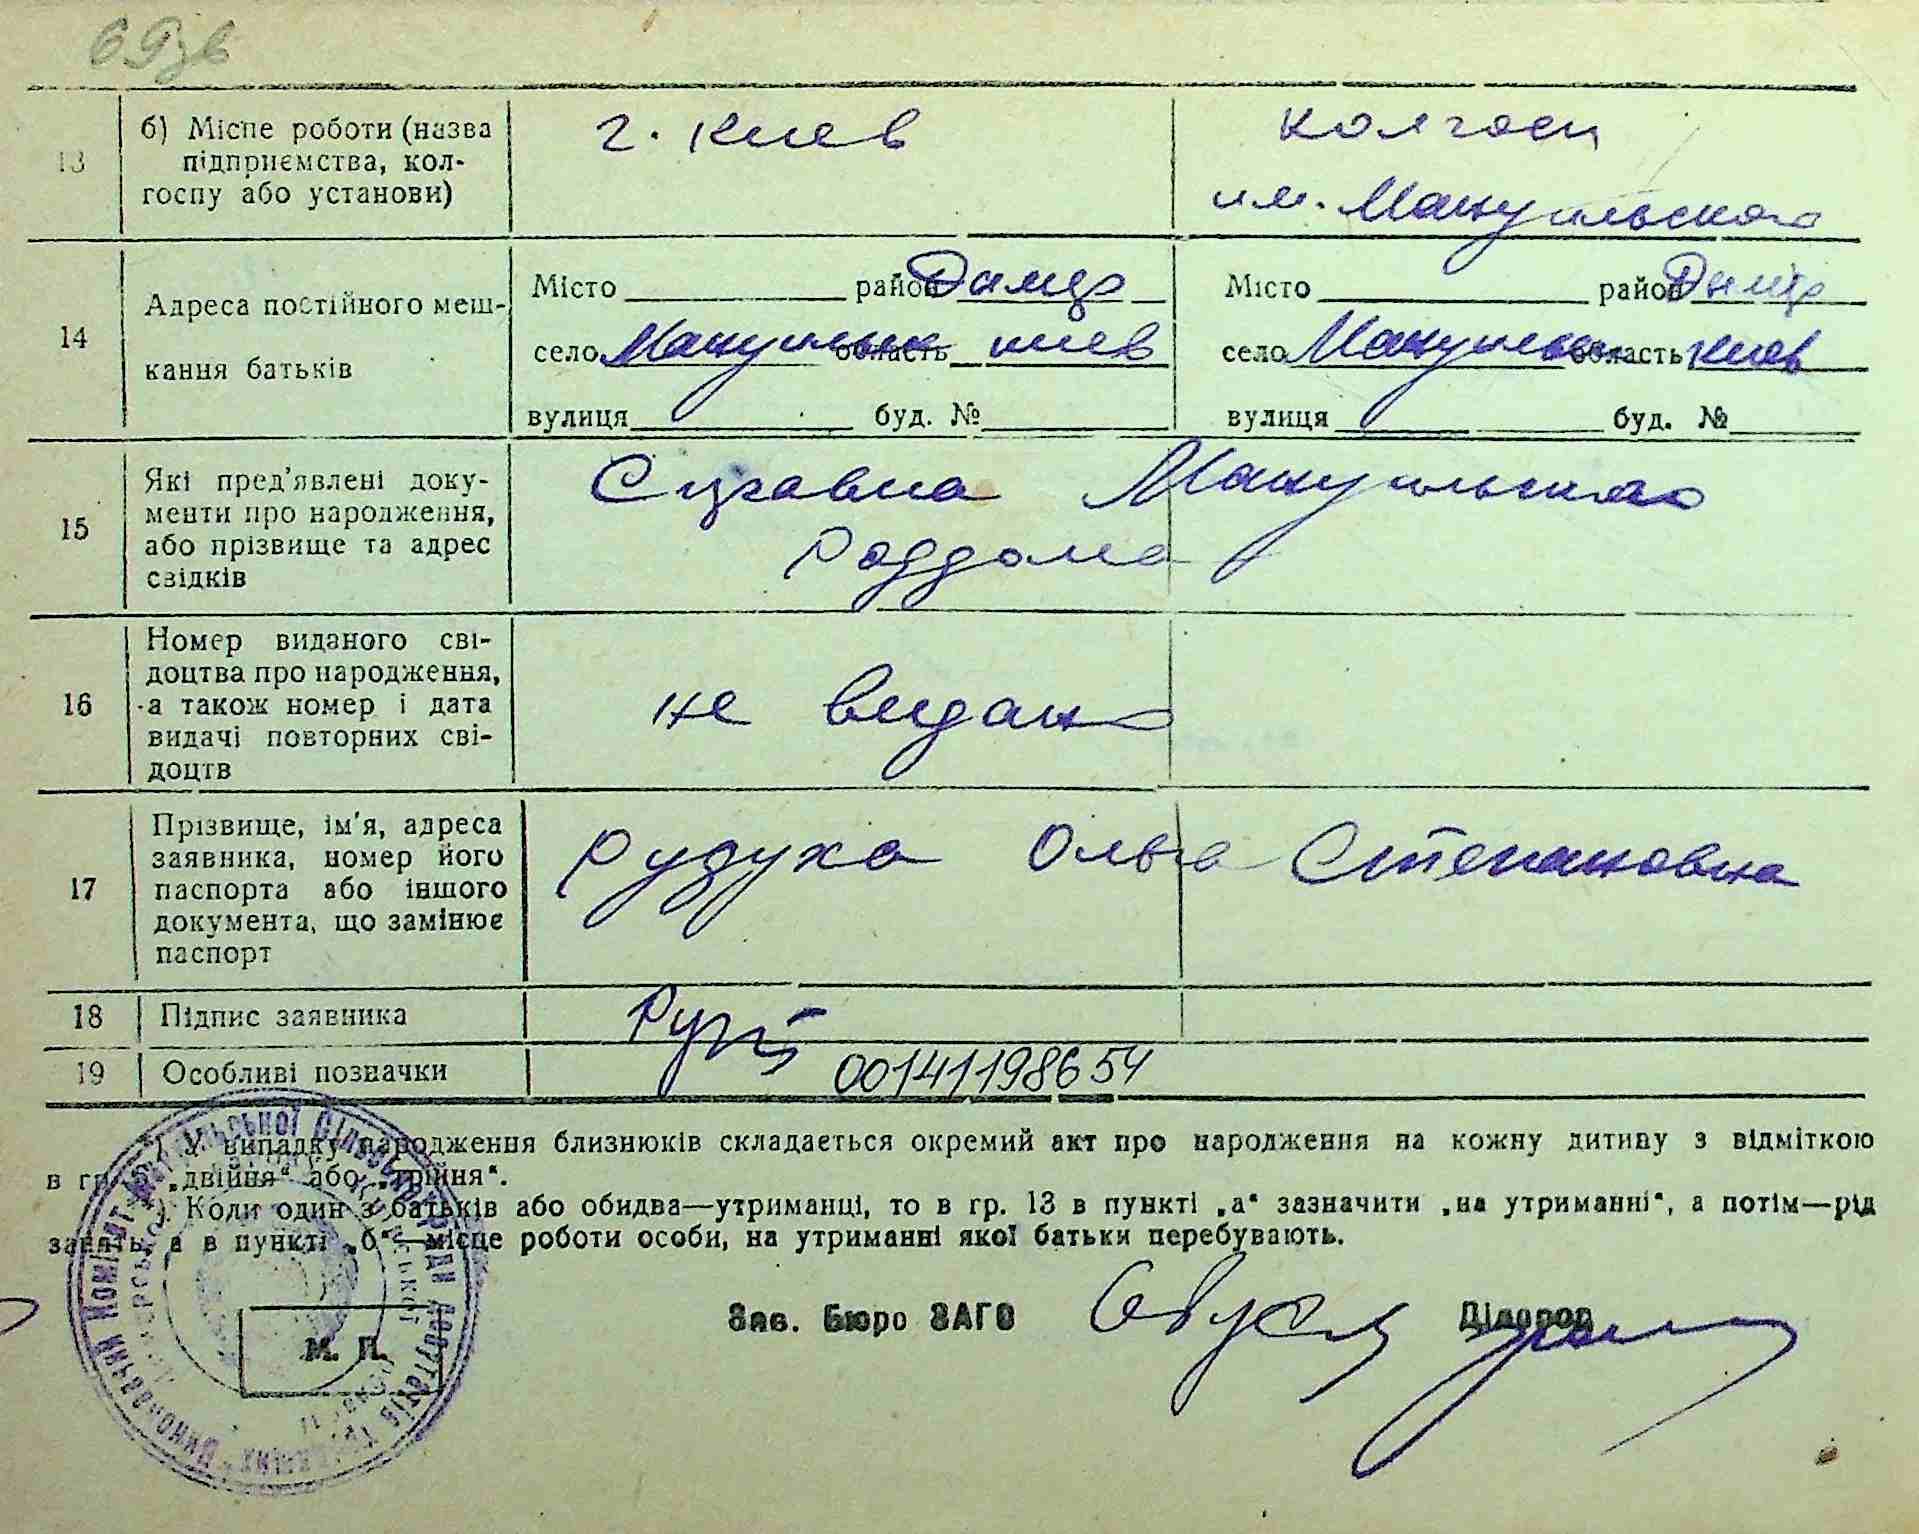 69зв
13
б) Місце роботи (назва
підприємства, кол-
госпу або установи)
г. Киев
колгосп
им. Мануильского
14
Адреса постійного меш-
кання батьків
Місто район Димер
село Мануильск область Киев
вулиця буд. №
Місто район Димер
село Мануильск область Киев
вулиця буд. №
15
Які пред'явлені доку-
менти про народження,
або прізвище та адрес
свідків
Справка Мануильского
Роддома
16
Номер виданого сві-
доцтва про народження,
а також номер і дата
видачі повторних сві-
доцтв
не видано
17
Прізвище, ім'я, адреса
заявника, номер його
паспорта або іншого
документа, що замінює
паспорт
Рудуха Ольга Степановна
18
Підпис заявника
19
Особливі позначки
00141198654
*) У випадку народження близнюків складається окремий акт про народження на кожну дитину з відміткою
в гр. 6 „двійня“ або „трійня“.
) Коли один з батьків або обидва—утриманці, то в гр. 13 в пункті „а“ зазначити „на утриманні“, а потім—рід
занять, а в пункті „б“—місце роботи особи, на утриманні якої батьки перебувають.
Зав. Бюро ЗАГС
Діловод
М. П.
Виконавчий Комітет Мануїльської Сільської Ради депутатів трудящих